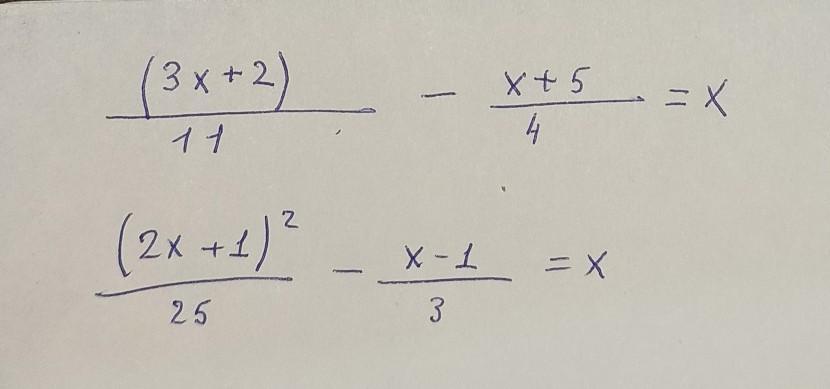 (3x+2)/11 - (x+5)/4 = x
(2x+1)²/25 - (x-1)/3 = x